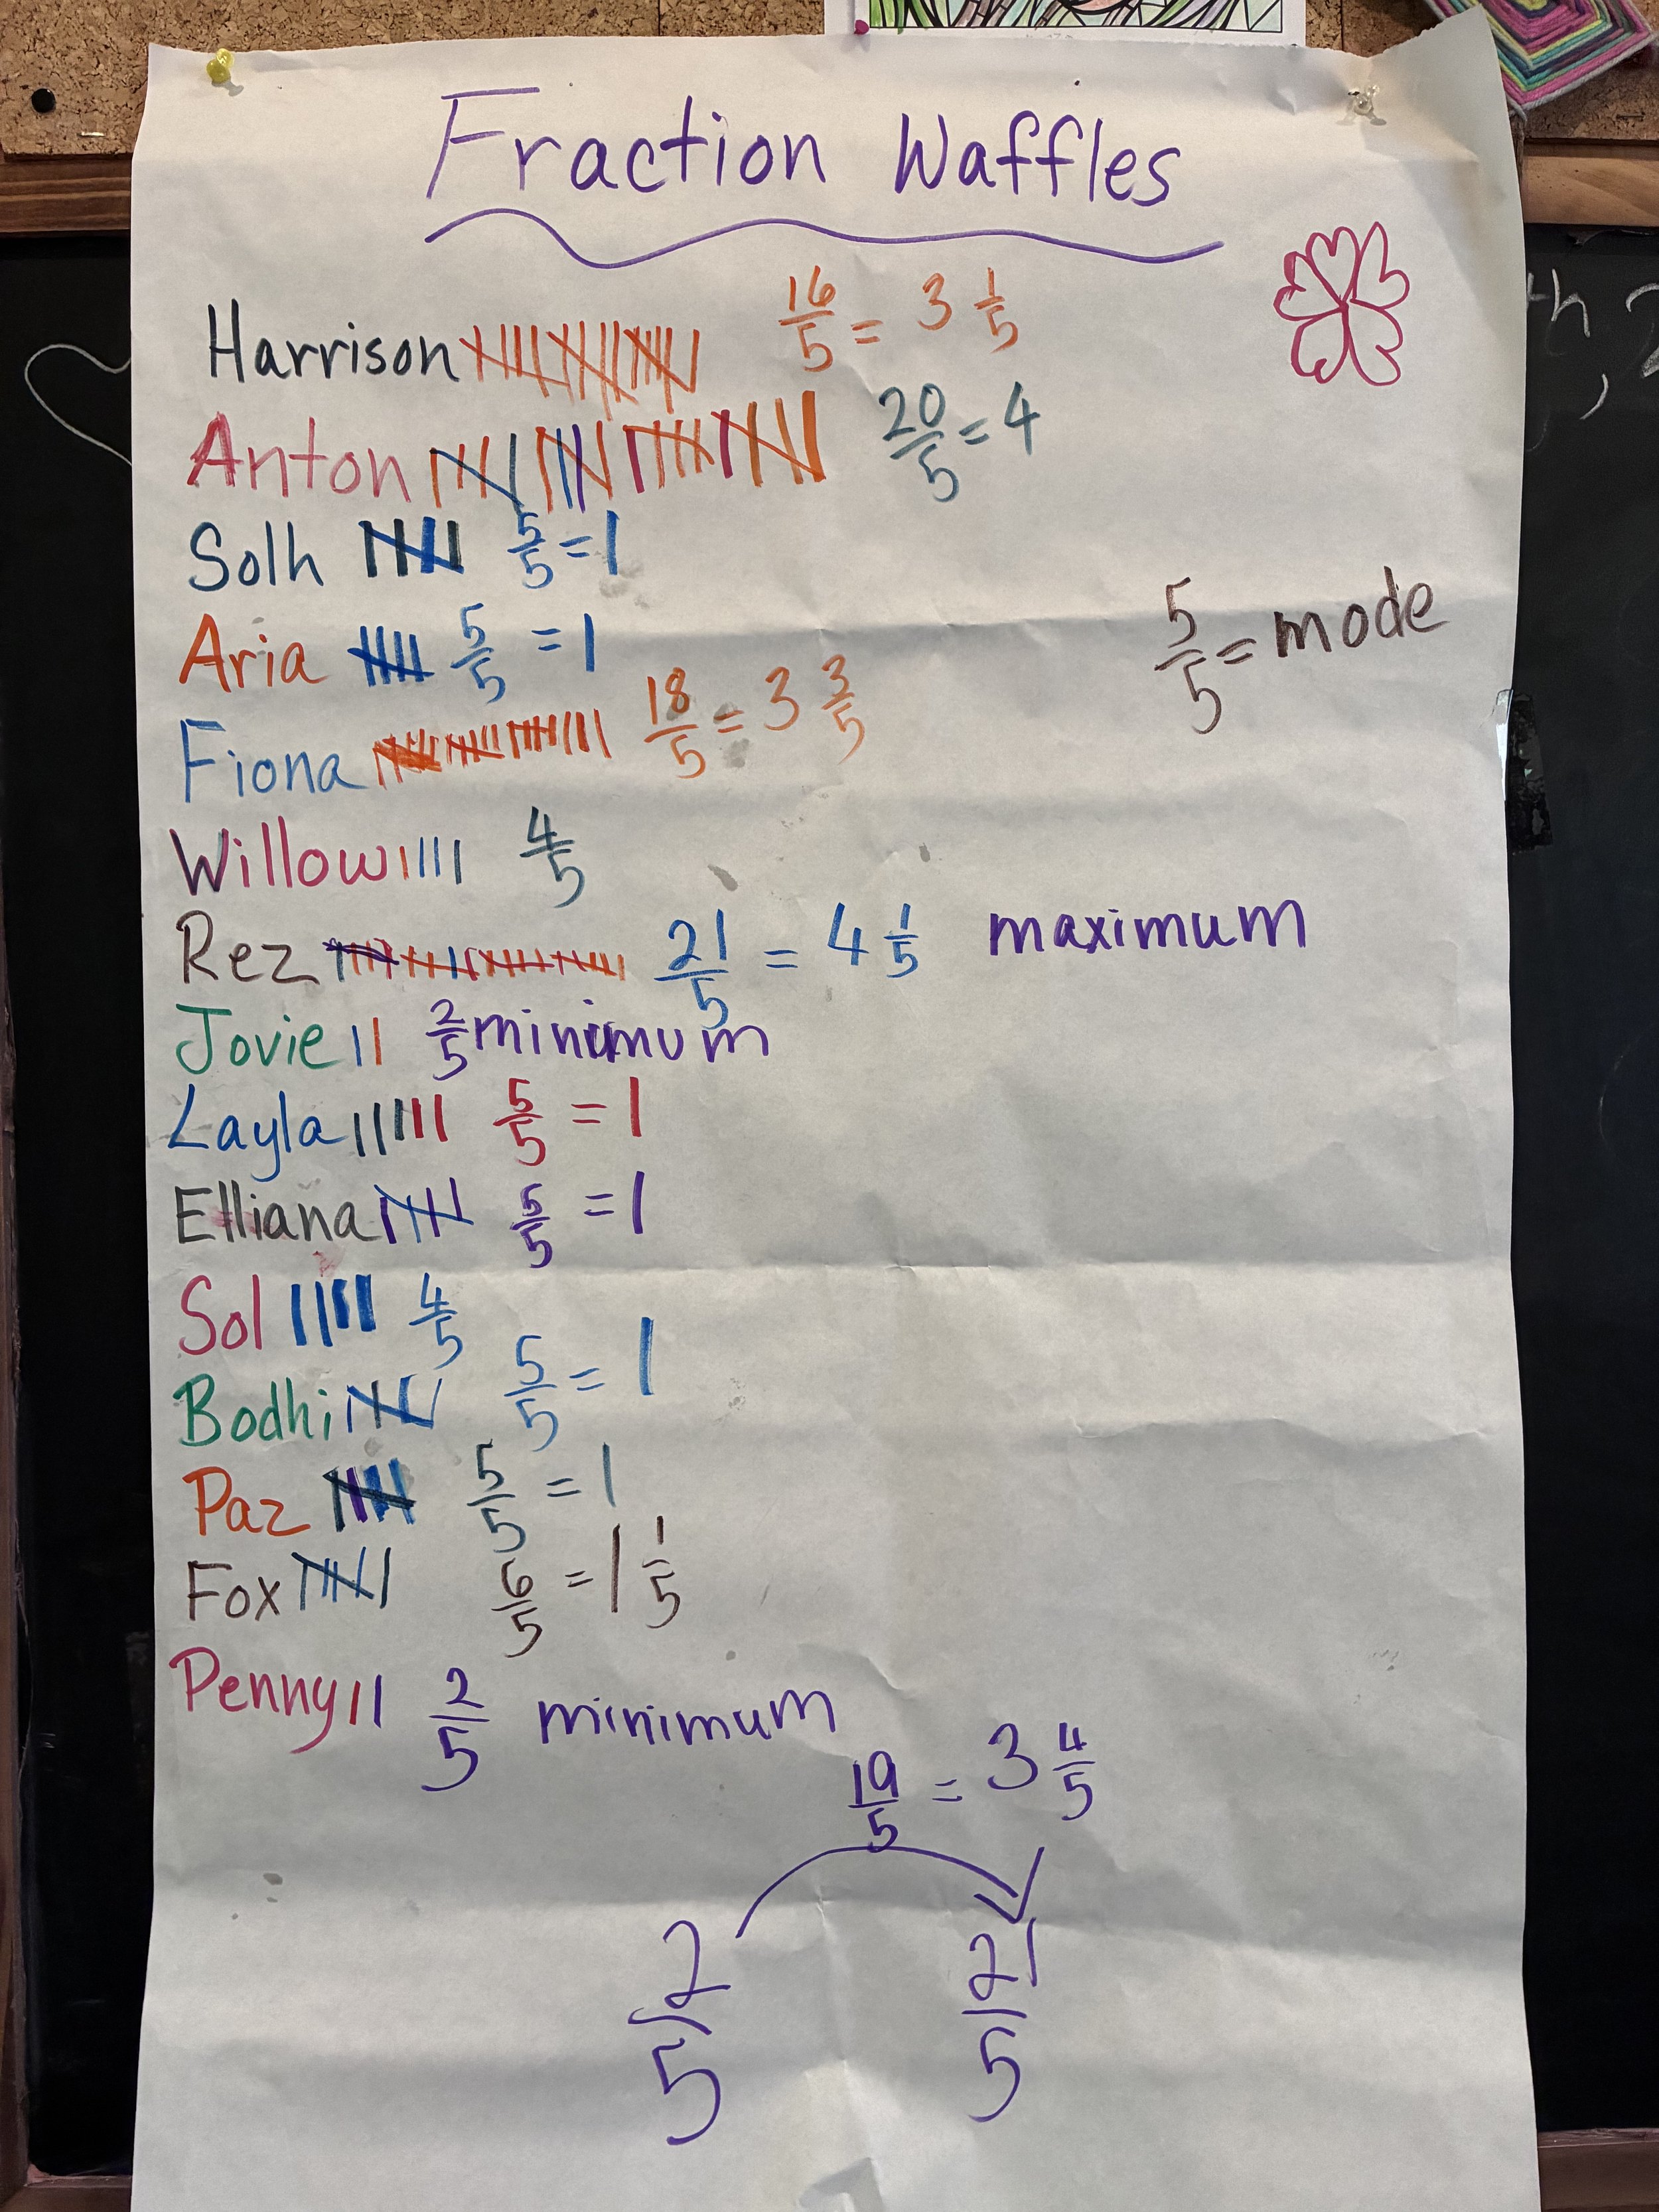 Fraction Waffles
Harrison 16/5 = 3 1/5
Anton 20/5 = 4
Solh 5/5 = 1
Aria 5/5 = 1
5/5 = mode
Fiona 18/5 = 3 3/5
Willow 4/5
Rez 21/5 = 4 1/5 maximum
Jovie 2/5 minimum
Layla 5/5 = 1
Elliana 5/5 = 1
Sol 4/5
Bodhi 5/5 = 1
Paz 5/5 = 1
Fox 6/5 = 1 1/5
Penny 2/5 minimum
19/5 = 3 4/5
2/5 21/5